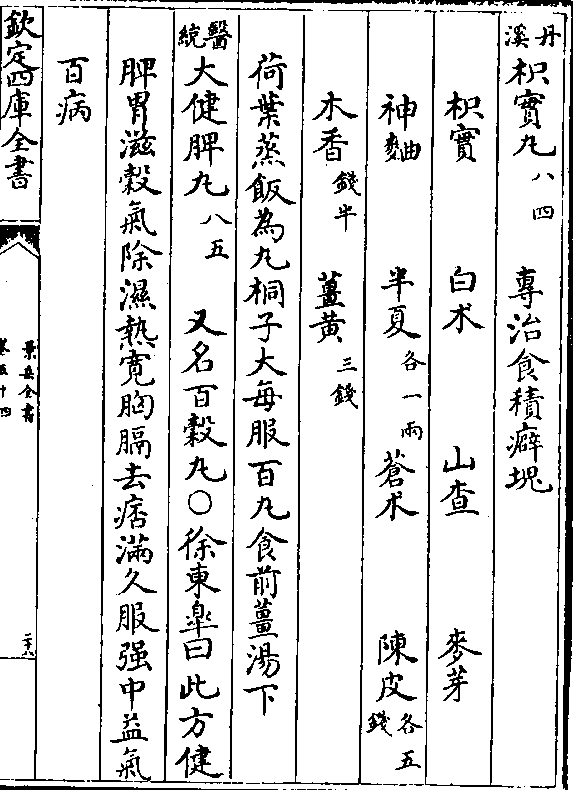 丹溪枳實丸八四　專治食積癖塊
枳實　白术　山查　麥芽
神麯　半夏各一兩　蒼术　陳皮各五錢
木香錢半　薑黃三錢
荷葉蒸飯為丸桐子大每服百丸食前薑湯下
醫統大健脾丸八五　又名百穀丸○徐東臯曰此方健
脾胃滋穀氣除濕熱寛胸膈去痞滿久服强中益氣
百病
欽定四庫全書
景岳全書
卷五十四
二十八